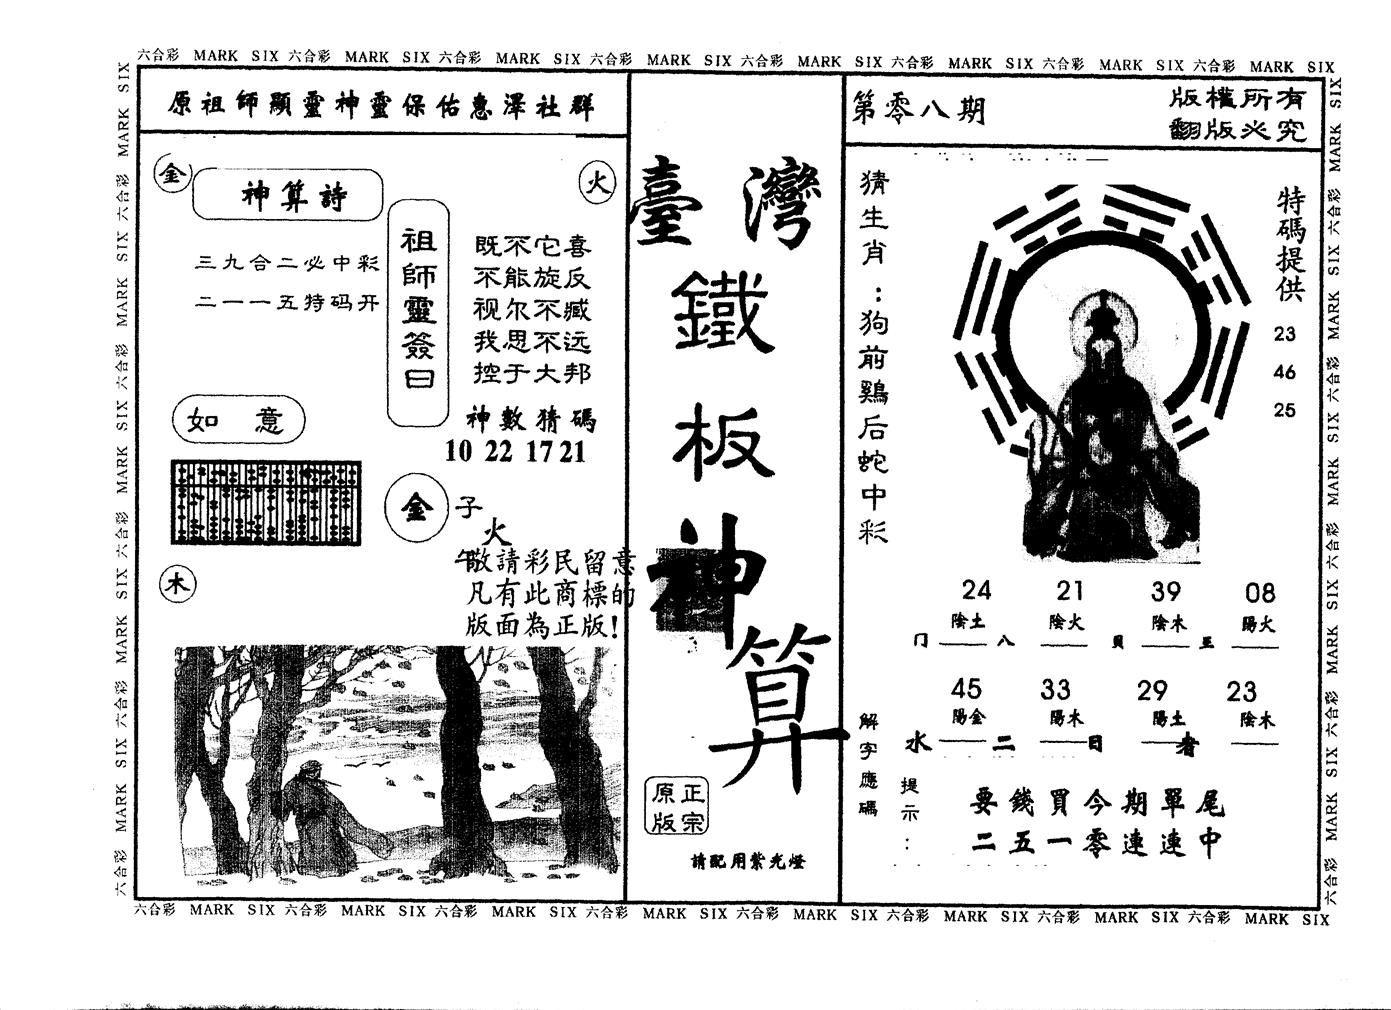 六合彩 MARK SIX 六合彩 MARK SIX 六合彩 MARK SIX 六合彩 MARK SIX 六合彩 MARK SIX 六合彩 MARK SIX 六合彩 MARK SIX 六合彩 MARK SIX
原祖師顯靈神靈保佑惠澤社群
金
火
神算詩
三九合二必中彩
二一一五特码开
祖師靈簽曰
既不它喜
不能旋反
视尔不臧
我思不远
控于大邦
神數猜碼
10 22 17 21
如意
金
子
火
木
午敬請彩民留意
凡有此商標的
版面為正版!
臺灣
鐵
板
神
算
正宗
原版
請配用紫光燈
第零八期
版權所有
翻版必究
猜生肖:狗前鷄后蛇中彩
特碼提供
23
46
25
24 21 39 08
陰土 陰火 陰木 陽火
门 八 貝 王
45 33 29 23
陽金 陽木 陽土 陰木
水 二 日 者
解字應碼
提示:
要錢買今期單尾
二五一零連連中
六合彩 MARK SIX 六合彩 MARK SIX 六合彩 MARK SIX 六合彩 MARK SIX 六合彩 MARK SIX 六合彩 MARK SIX 六合彩 MARK SIX 六合彩 MARK SIX